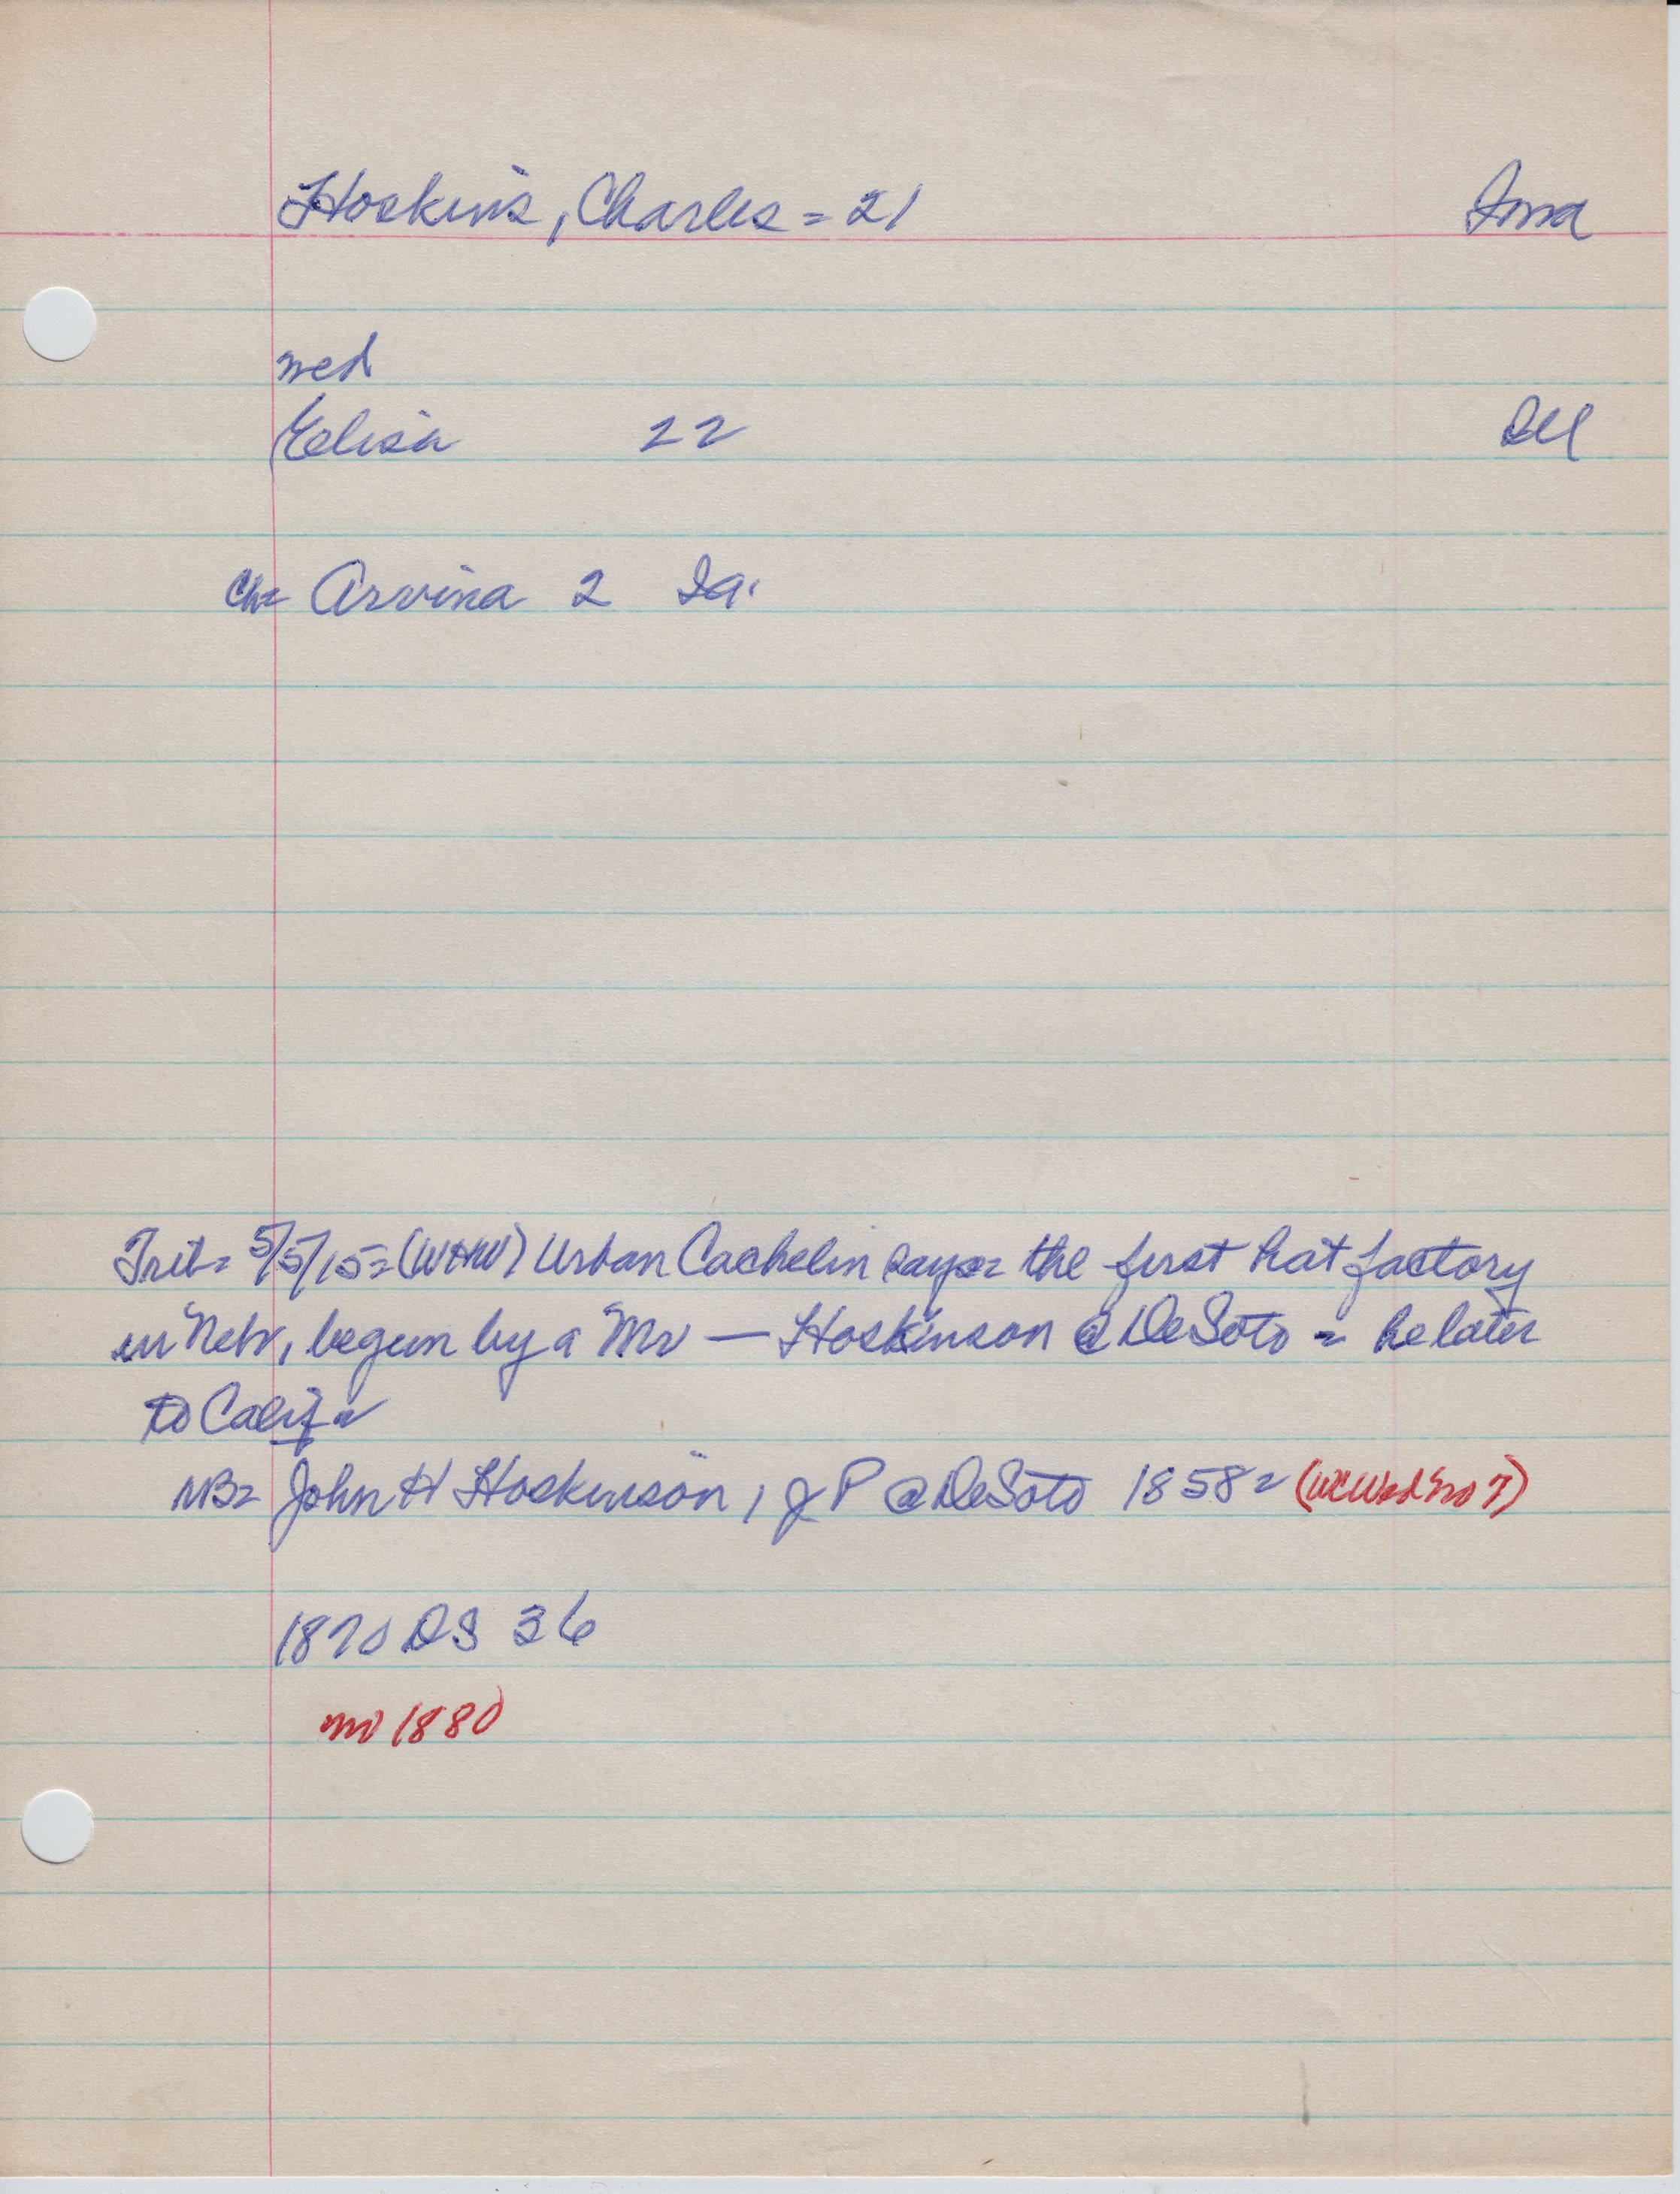 Hoskins, Charles = 21 Iowa
wed
Eliza 22 Ill
Ch= Arvina 2 Ia.
Trib= 5/5/15= (WHW) Urban Cachelin says= the first hat factory
in Neb, begun by a Mr — Hoskinson @ DeSoto = he later
to Calif =
NB= John H Hoskinson, JP @ DeSoto 1858=
1870 DS 36
no 1880